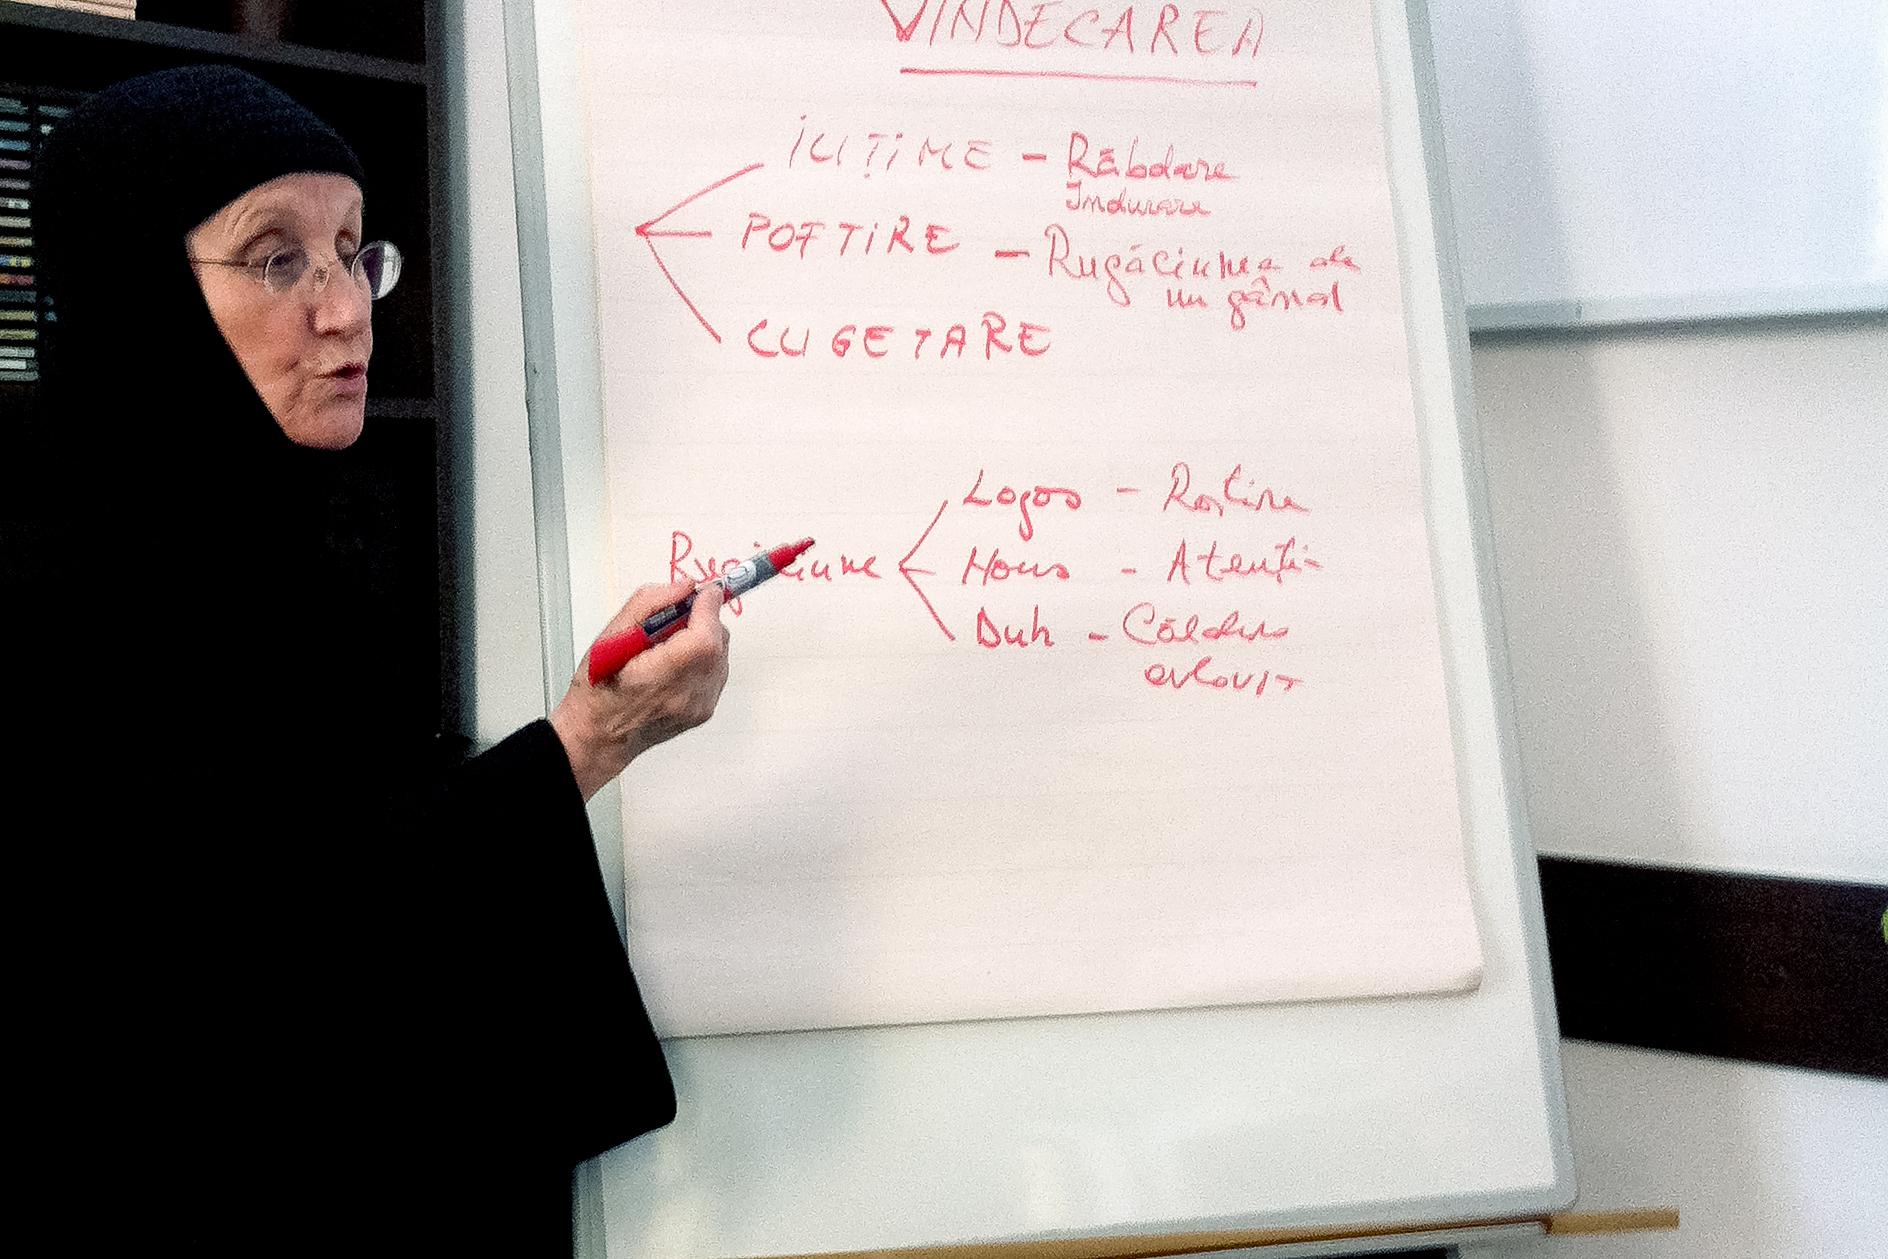 VINDECAREA
IUȚIME - Răbdare
Îndurare
POFTIRE - Rugăciunea de
un gând
CUGETARE
Logos - Rostire
Rugăciune Nous - Atenție
Duh - Căldură